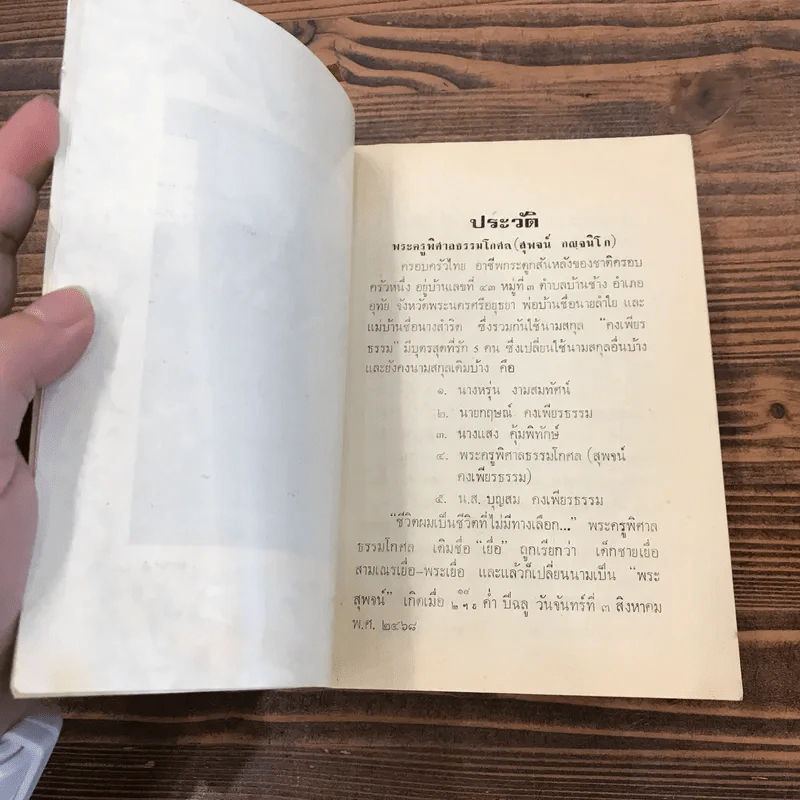 ประวัติ
พระครูพิศาลธรรมโกศล (สุพจน์ กญฺจนิโก)
ครอบครัวไทย อาชีพกระดูกสันหลังของชาติครอบ
ครัวหนึ่ง อยู่บ้านเลขที่ ๔๓ หมู่ที่ ๓ ตำบลบ้านช้าง อำเภอ
อุทัย จังหวัดพระนครศรีอยุธยา พ่อบ้านชื่อนายลำใย และ
แม่บ้านชื่อนางสำริด ซึ่งรวมกันใช้นามสกุล "คงเพียร
ธรรม" มีบุตรสุดที่รัก ๕ คน ซึ่งเปลี่ยนใช้นามสกุลอื่นบ้าง
และยังคงนามสกุลเดิมบ้าง คือ
๑. นางหรุ่น งามสมทัศน์
๒. นายกฤษณ์ คงเพียรธรรม
๓. นางแสง คุ้มพิทักษ์
๔. พระครูพิศาลธรรมโกศล (สุพจน์
คงเพียรธรรม)
๕. น.ส. บุญสม คงเพียรธรรม
"ชีวิตผมเป็นชีวิตที่ไม่มีทางเลือก..." พระครูพิศาล
ธรรมโกศล เดิมชื่อ "เยื่อ" ถูกเรียกว่า เด็กชายเยื่อ
สามเณรเยื่อ-พระเยื่อ และแล้วก็เปลี่ยนนามเป็น "พระ
สุพจน์" เกิดเมื่อ ค่ำ ปีฉลู วันจันทร์ที่ ๓ สิงหาคม
พ.ศ. ๒๔๖๘